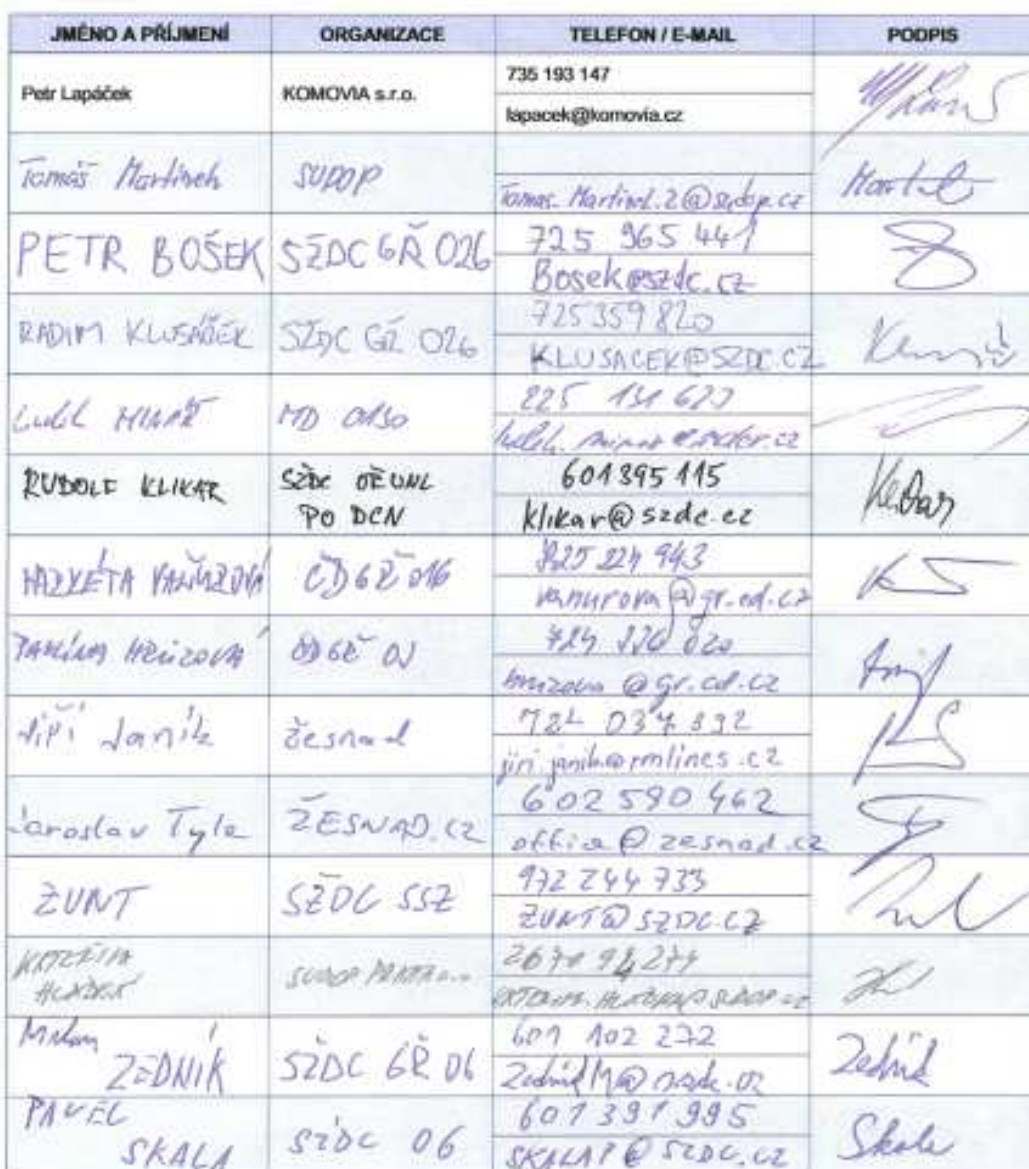 JMÉNO A PŘÍJMENÍ ORGANIZACE TELEFON / E-MAIL PODPIS
Petr Lapáček KOMOVIA s.r.o. 735 193 147
lapacek@komovia.cz
Tomáš Martinek SUDOP
Tomas.Martinek.2@sudop.cz Martinek
PETR BOŠEK SŽDC GŘ O26 725 965 441
Bosek@szdc.cz
RADIM KLUSÁČEK SŽDC GŘ O26 725 359 820
KLUSACEK@SZDC.CZ
MD O130 225 131
RUDOLF KLIKAR SŽDC OŘ UNL 601 395 115
PO DCN klikar@szdc.cz Klikar
MARKÉTA VAŇUROVÁ ČD GŘ O16 224 943
vanurova@gr.cd.cz
HRŮZOVÁ ČD GŘ
hruzova@gr.cd.cz
Jiří Janík žesnad 724 037 332
jiri.janik@rmlines.cz
Jaroslav Tyle ŽESNAD.CZ 602 590 462
office@zesnad.cz
ŽUNT SŽDC SSZ 972 244 733
ZUNT@SZDC.CZ
KATEŘINA SUDOP PRAHA
Milan
ZEDNÍK SŽDC GŘ O6 601 102 272
ZednikM@szdc.cz Zedník
PAVEL
SKALA SŽDC O6 601 391 995
SKALAP@SZDC.CZ Skala